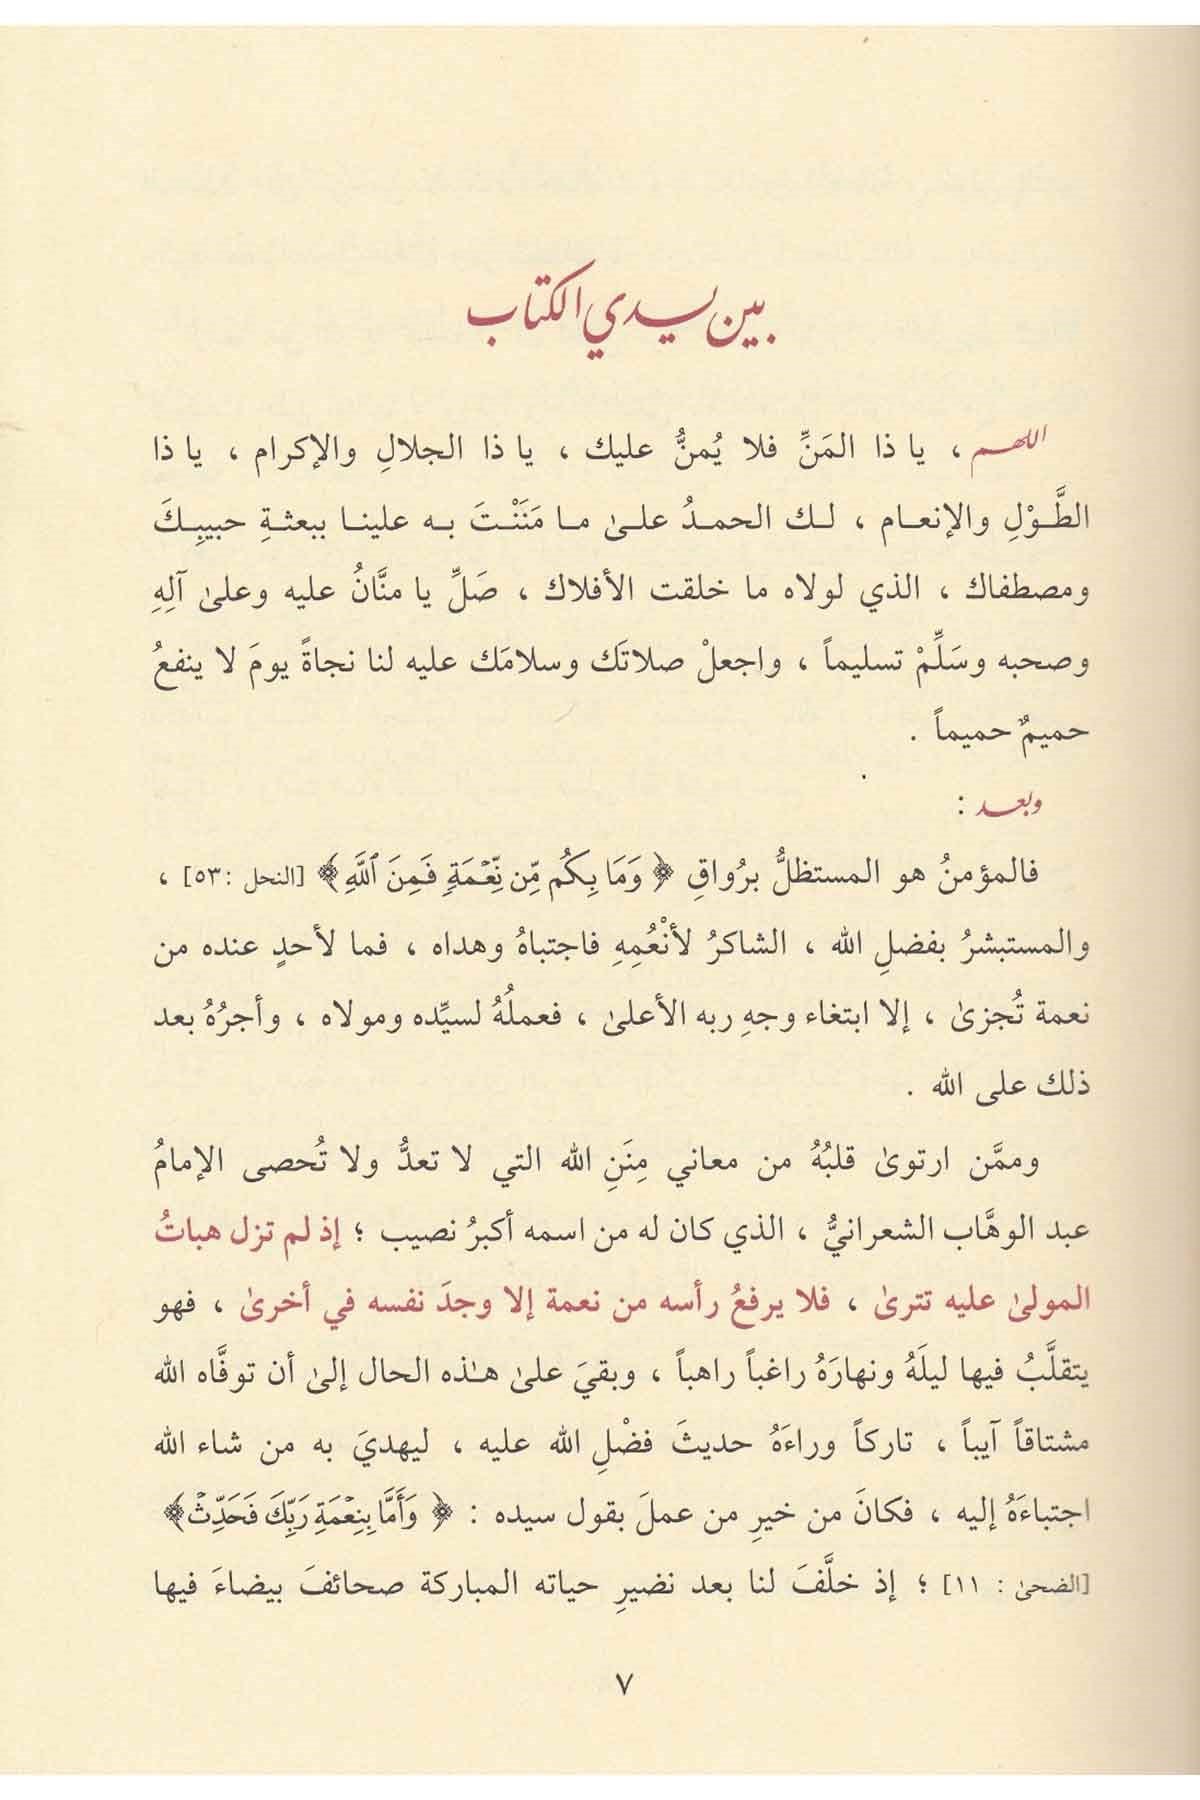 بين يدي الكتاب
اللهم ، يا ذا المَنِّ فلا يُمنُّ عليك ، يا ذا الجلالِ والإكرام ، يا ذا
الطَّوْلِ والإنعام ، لك الحمدُ علىٰ ما مَنَنْتَ به علينا ببعثةِ حبيبِكَ
ومصطفاك ، الذي لولاه ما خلقت الأفلاك ، صَلِّ يا منَّانُ عليه وعلىٰ آلِهِ
وصحبه وسَلِّمْ تسليماً ، واجعلْ صلاتَك وسلامَك عليه لنا نجاةً يومَ لا ينفعُ
حميمٌ حميماً .
وبعد :
فالمؤمنُ هو المستظلُّ برُواقِ ﴿ وَمَا بِكُم مِّن نِّعْمَةٍ فَمِنَ ٱللَّهِ ﴾ [النحل : ٥٣] ،
والمستبشرُ بفضلِ الله ، الشاكرُ لأنْعُمِهِ فاجتباهُ وهداه ، فما لأحدٍ عنده من
نعمة تُجزىٰ ، إلا ابتغاء وجهِ ربه الأعلىٰ ، فعملُهُ لسيِّده ومولاه ، وأجرُهُ بعد
ذلك على الله .
وممَّن ارتوىٰ قلبُهُ من معاني مِنَنِ الله التي لا تعدُّ ولا تُحصى الإمامُ
عبد الوهَّاب الشعرانيُّ ، الذي كان له من اسمه أكبرُ نصيب ؛ إذ لم تزل هباتُ
المولىٰ عليه تترىٰ ، فلا يرفعُ رأسه من نعمة إلا وجدَ نفسه في أخرىٰ ، فهو
يتقلَّبُ فيها ليلَهُ ونهارَهُ راغباً راهباً ، وبقيَ علىٰ هـٰذه الحال إلىٰ أن توفَّاه الله
مشتاقاً آيباً ، تاركاً وراءَهُ حديثَ فضْلِ الله عليه ، ليهديَ به من شاء الله
اجتباءَهُ إليه ، فكانَ من خيرِ من عملَ بقول سيده : ﴿ وَأَمَّا بِنِعْمَةِ رَبِّكَ فَحَدِّثْ ﴾
[الضحىٰ : ١١] ؛ إذ خلَّفَ لنا بعد نضيرِ حياته المباركة صحائفَ بيضاءَ فيها
٧